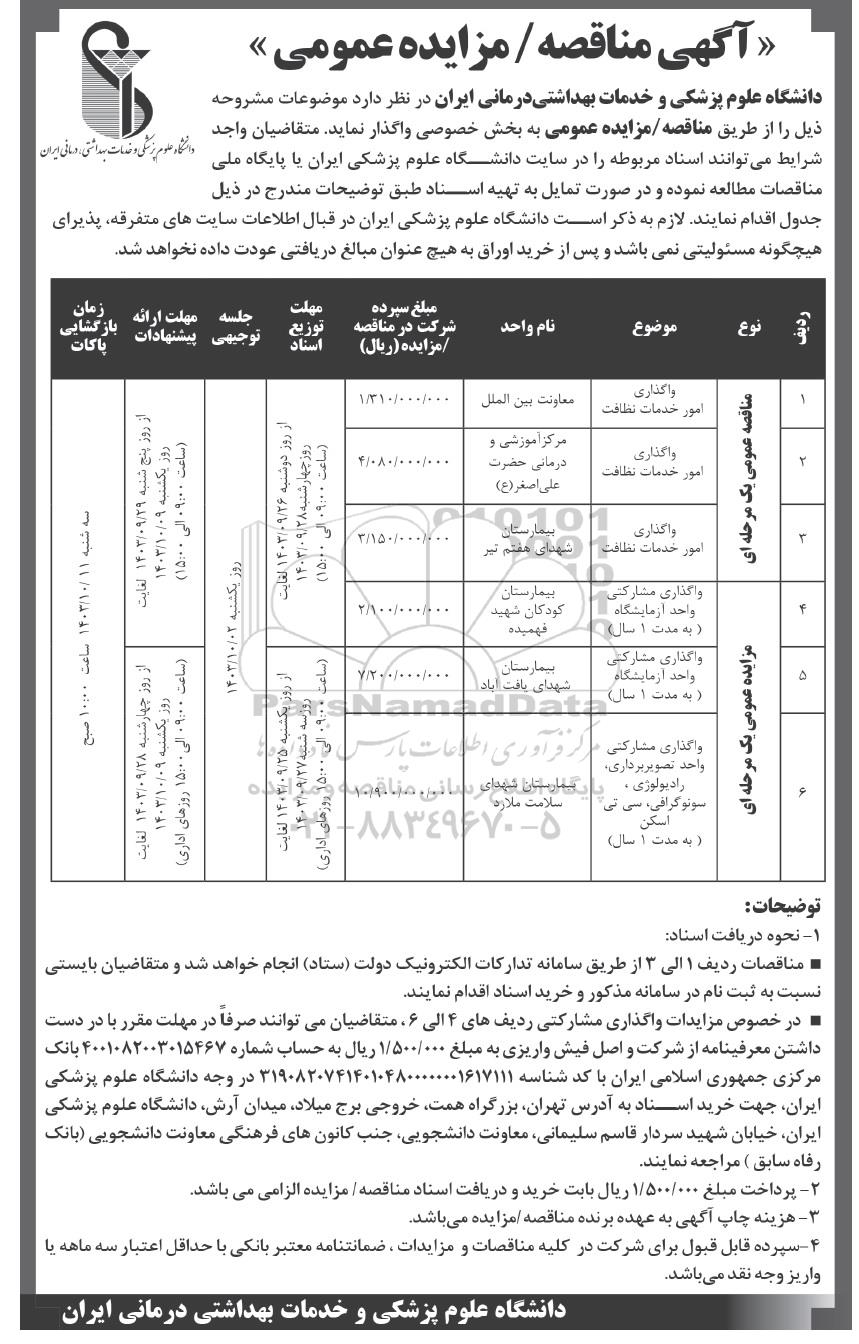 « آگهی مناقصه / مزایده عمومی »
دانشگاه علوم پزشکی و خدمات بهداشتی، درمانی ایران
دانشگاه علوم پزشکی و خدمات بهداشتی‌درمانی ایران در نظر دارد موضوعات مشروحه
ذیل را از طریق مناقصه/مزایده عمومی به بخش خصوصی واگذار نماید. متقاضیان واجد
شرایط می‌توانند اسناد مربوطه را در سایت دانشگاه علوم پزشکی ایران یا پایگاه ملی
مناقصات مطالعه نموده و در صورت تمایل به تهیه اسناد طبق توضیحات مندرج در ذیل
جدول اقدام نمایند. لازم به ذکر است دانشگاه علوم پزشکی ایران در قبال اطلاعات سایت های متفرقه، پذیرای
هیچگونه مسئولیتی نمی باشد و پس از خرید اوراق به هیچ عنوان مبالغ دریافتی عودت داده نخواهد شد.
ردیف
نوع
موضوع
نام واحد
مبلغ سپرده
شرکت در مناقصه
/مزایده (ریال)
مهلت
توزیع
اسناد
جلسه
توجیهی
مهلت ارائه
پیشنهادات
زمان
بازگشایی
پاکات
مناقصه عمومی یک مرحله ای
۱
واگذاری
امور خدمات نظافت
معاونت بین الملل
۱/۳۱۰/۰۰۰/۰۰۰
۲
واگذاری
امور خدمات نظافت
مرکزآموزشی و
درمانی حضرت
علی‌اصغر(ع)
۴/۰۸۰/۰۰۰/۰۰۰
۳
واگذاری
امور خدمات نظافت
بیمارستان
شهدای هفتم تیر
۳/۱۵۰/۰۰۰/۰۰۰
از روز دوشنبه ۱۴۰۳/۰۹/۲۶ لغایت
روزچهارشنبه ۱۴۰۳/۰۹/۲۸
(ساعت ۰۹:۰۰ الی ۱۵:۰۰)
روز یکشنبه ۱۴۰۳/۱۰/۰۲
از روز پنج شنبه ۱۴۰۳/۰۹/۲۹ لغایت
روز یکشنبه ۱۴۰۳/۱۰/۰۹
(ساعت ۰۹:۰۰ الی ۱۵:۰۰)
سه شنبه ۱۴۰۳/۱۰/۱۱ ساعت ۱۰:۰۰ صبح
مزایده عمومی یک مرحله ای
۴
واگذاری مشارکتی
واحد آزمایشگاه
( به مدت ۱ سال)
بیمارستان
کودکان شهید
فهمیده
۲/۱۰۰/۰۰۰/۰۰۰
۵
واگذاری مشارکتی
واحد آزمایشگاه
( به مدت ۱ سال)
بیمارستان
شهدای یافت آباد
۷/۲۰۰/۰۰۰/۰۰۰
۶
واگذاری مشارکتی
واحد تصویربرداری،
رادیولوژی ،
سونوگرافی، سی تی
اسکن
( به مدت ۱ سال)
بیمارستان شهدای
سلامت ملارد
۱۰/۹۰۰/۰۰۰/۰۰۰
از روز یکشنبه ۱۴۰۳/۰۹/۲۵ لغایت
روزسه شنبه ۱۴۰۳/۰۹/۲۷
(ساعت ۰۹:۰۰ الی ۱۵:۰۰ روزهای اداری)
از روز چهارشنبه ۱۴۰۳/۰۹/۲۸ لغایت
روز یکشنبه ۱۴۰۳/۱۰/۰۹
(ساعت ۰۹:۰۰ الی ۱۵:۰۰ روزهای اداری)
ParsNamadData
مرکز فرآوری اطلاعات پارس نماد داده ها
پایگاه اطلاع رسانی مناقصه و مزایده
۰۲۱-۸۸۳۴۹۶۷۰-۵
توضیحات:
۱- نحوه دریافت اسناد:
■ مناقصات ردیف ۱ الی ۳ از طریق سامانه تدارکات الکترونیک دولت (ستاد) انجام خواهد شد و متقاضیان بایستی
نسبت به ثبت نام در سامانه مذکور و خرید اسناد اقدام نمایند.
■ در خصوص مزایدات واگذاری مشارکتی ردیف های ۴ الی ۶ ، متقاضیان می توانند صرفاً در مهلت مقرر با در دست
داشتن معرفینامه از شرکت و اصل فیش واریزی به مبلغ ۱/۵۰۰/۰۰۰ ریال به حساب شماره ۴۰۰۱۰۸۲۰۰۳۰۱۵۴۶۷ بانک
مرکزی جمهوری اسلامی ایران با کد شناسه ۳۱۹۰۸۲۰۷۴۱۴۰۱۰۴۸۰۰۰۰۰۰۰۱۶۱۷۱۱۱ در وجه دانشگاه علوم پزشکی
ایران، جهت خرید اسناد به آدرس تهران، بزرگراه همت، خروجی برج میلاد، میدان آرش، دانشگاه علوم پزشکی
ایران، خیابان شهید سردار قاسم سلیمانی، معاونت دانشجویی، جنب کانون های فرهنگی معاونت دانشجویی (بانک
رفاه سابق ) مراجعه نمایند.
۲- پرداخت مبلغ ۱/۵۰۰/۰۰۰ ریال بابت خرید و دریافت اسناد مناقصه/ مزایده الزامی می باشد.
۳- هزینه چاپ آگهی به عهده برنده مناقصه /مزایده می‌باشد.
۴-سپرده قابل قبول برای شرکت در کلیه مناقصات و مزایدات ، ضمانتنامه معتبر بانکی با حداقل اعتبار سه ماهه یا
واریز وجه نقد می‌باشد.
دانشگاه علوم پزشکی و خدمات بهداشتی درمانی ایران